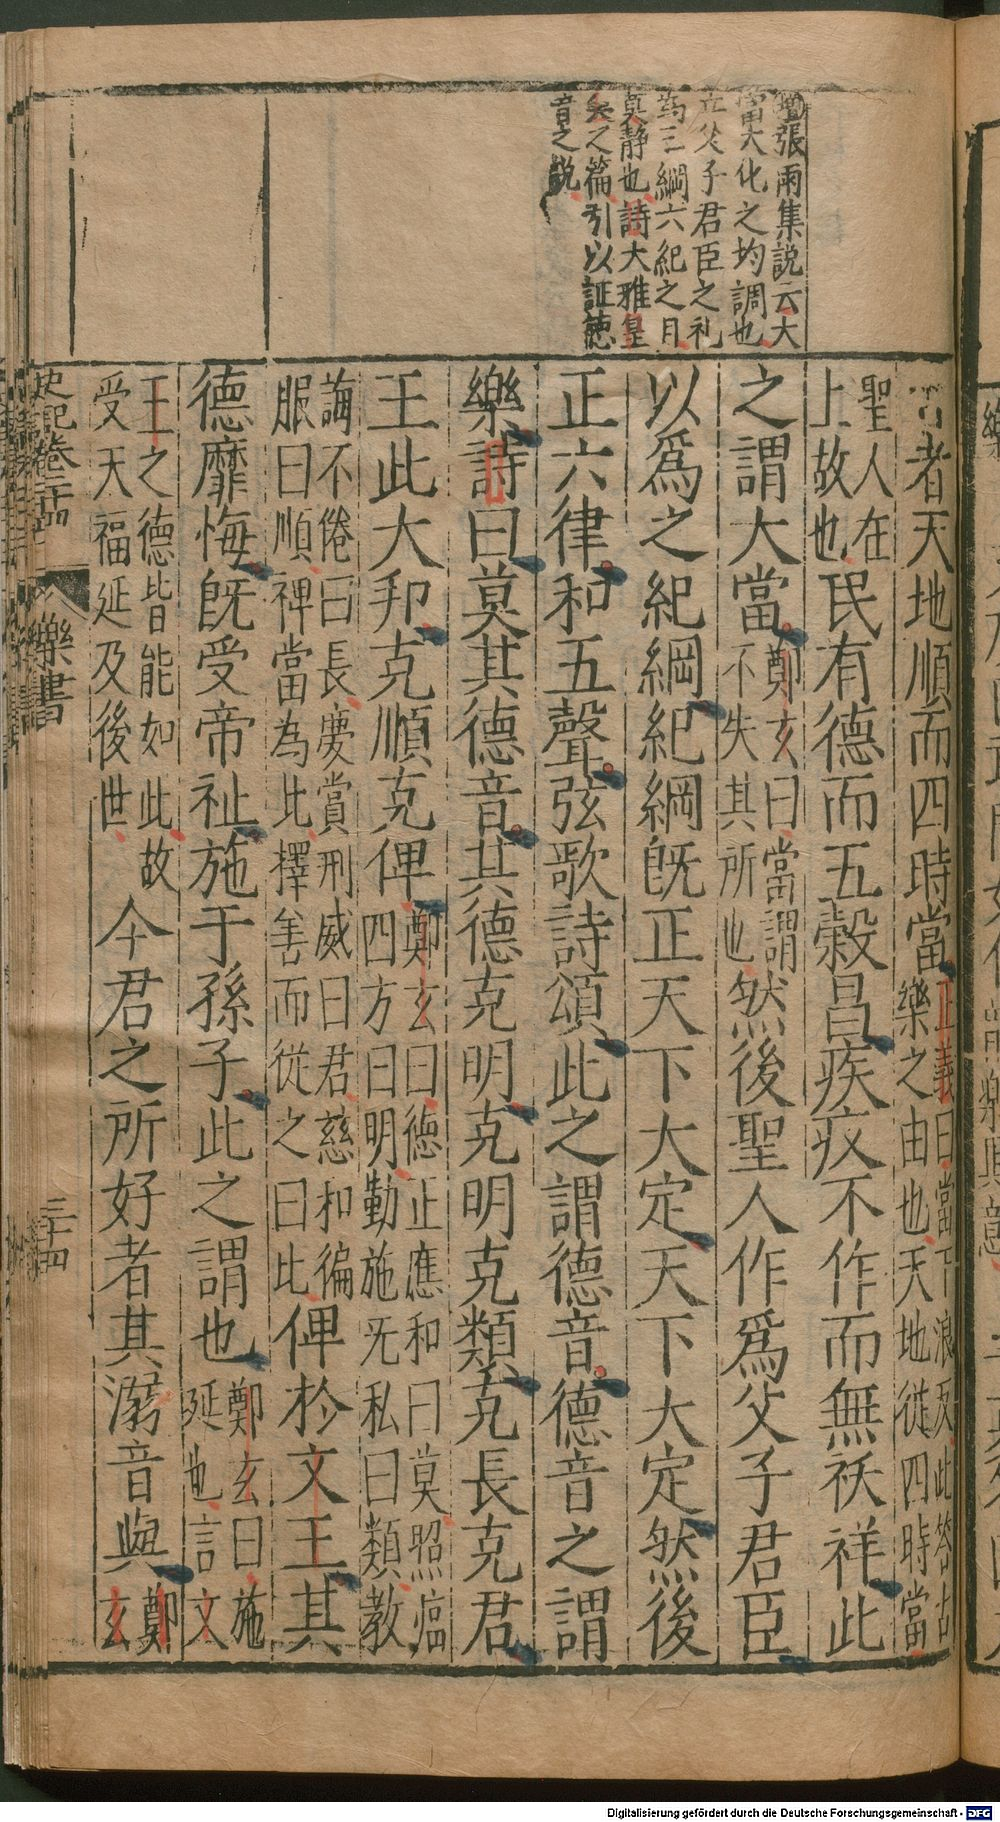 增張雨集説云大
當大化之均調也
立父子君臣之礼
為三綱六紀之目
莫靜也詩大雅皇
矣之篇引以証德
音之説
者天地順而四時當正義曰當丁浪反此答古
樂之由也天地從四時當
聖人在
上故也民有德而五穀昌疾疢不作而無祅祥此
之謂大當鄭玄曰當謂
不失其所也然後聖人作爲父子君臣
以爲之紀綱紀綱既正天下大定天下大定然後
正六律和五聲弦歌詩頌此之謂德音德音之謂
樂詩曰莫其德音其德克明克明克類克長克君
王此大邦克順克俾鄭玄曰德正應和曰莫照臨
四方曰明勤施无私曰類教
誨不倦曰長慶賞刑威曰君慈和徧
服曰順俾當為比擇善而從之曰比俾於文王其
德靡悔既受帝祉施于孫子此之謂也鄭玄曰施
延也言文
王之德皆能如此故
受天福延及後世今君之所好者其溺音與鄭
玄
史記卷二十四 樂書
三十四
Digitalisierung gefördert durch die Deutsche Forschungsgemeinschaft - DFG